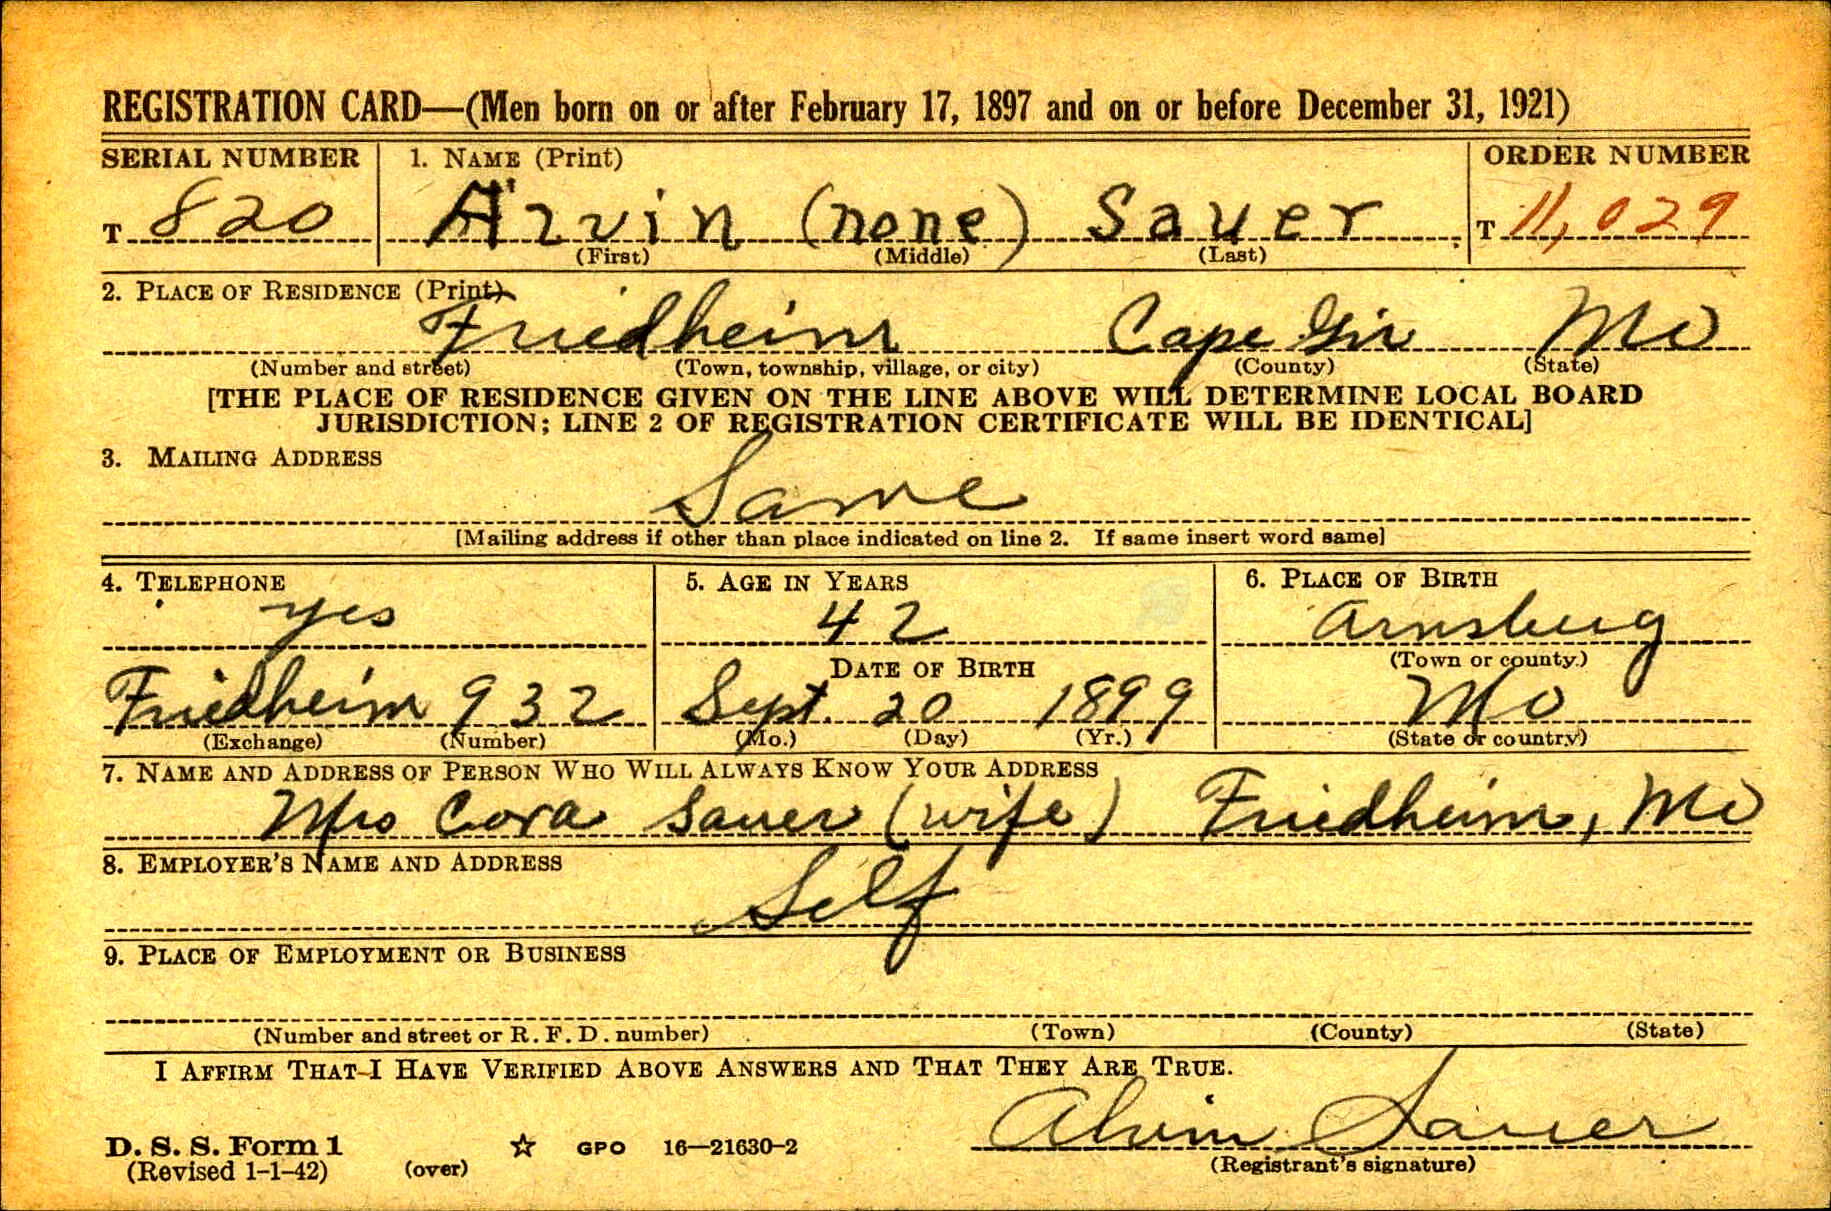 REGISTRATION CARD—(Men born on or after February 17, 1897 and on or before December 31, 1921)
SERIAL NUMBER 1. NAME (Print) ORDER NUMBER
T 820 Alvin (none) Sauer T 11,029
(First) (Middle) (Last)
2. PLACE OF RESIDENCE (Print)
Friedheim Cape Gir Mo
(Number and street) (Town, township, village, or city) (County) (State)
[THE PLACE OF RESIDENCE GIVEN ON THE LINE ABOVE WILL DETERMINE LOCAL BOARD
JURISDICTION; LINE 2 OF REGISTRATION CERTIFICATE WILL BE IDENTICAL]
3. MAILING ADDRESS
Same
[Mailing address if other than place indicated on line 2. If same insert word same]
4. TELEPHONE 5. AGE IN YEARS 6. PLACE OF BIRTH
yes 42 Arnsberg
DATE OF BIRTH (Town or county)
Friedheim 932 Sept. 20 1899 Mo
(Exchange) (Number) (Mo.) (Day) (Yr.) (State or country)
7. NAME AND ADDRESS OF PERSON WHO WILL ALWAYS KNOW YOUR ADDRESS
Mrs Cora Sauer (wife) Friedheim, Mo
8. EMPLOYER'S NAME AND ADDRESS
Self
9. PLACE OF EMPLOYMENT OR BUSINESS
(Number and street or R. F. D. number) (Town) (County) (State)
I AFFIRM THAT I HAVE VERIFIED ABOVE ANSWERS AND THAT THEY ARE TRUE.
Alvin Sauer
D. S. S. Form 1 ☆ GPO 16—21630-2
(Revised 1-1-42) (over) (Registrant's signature)